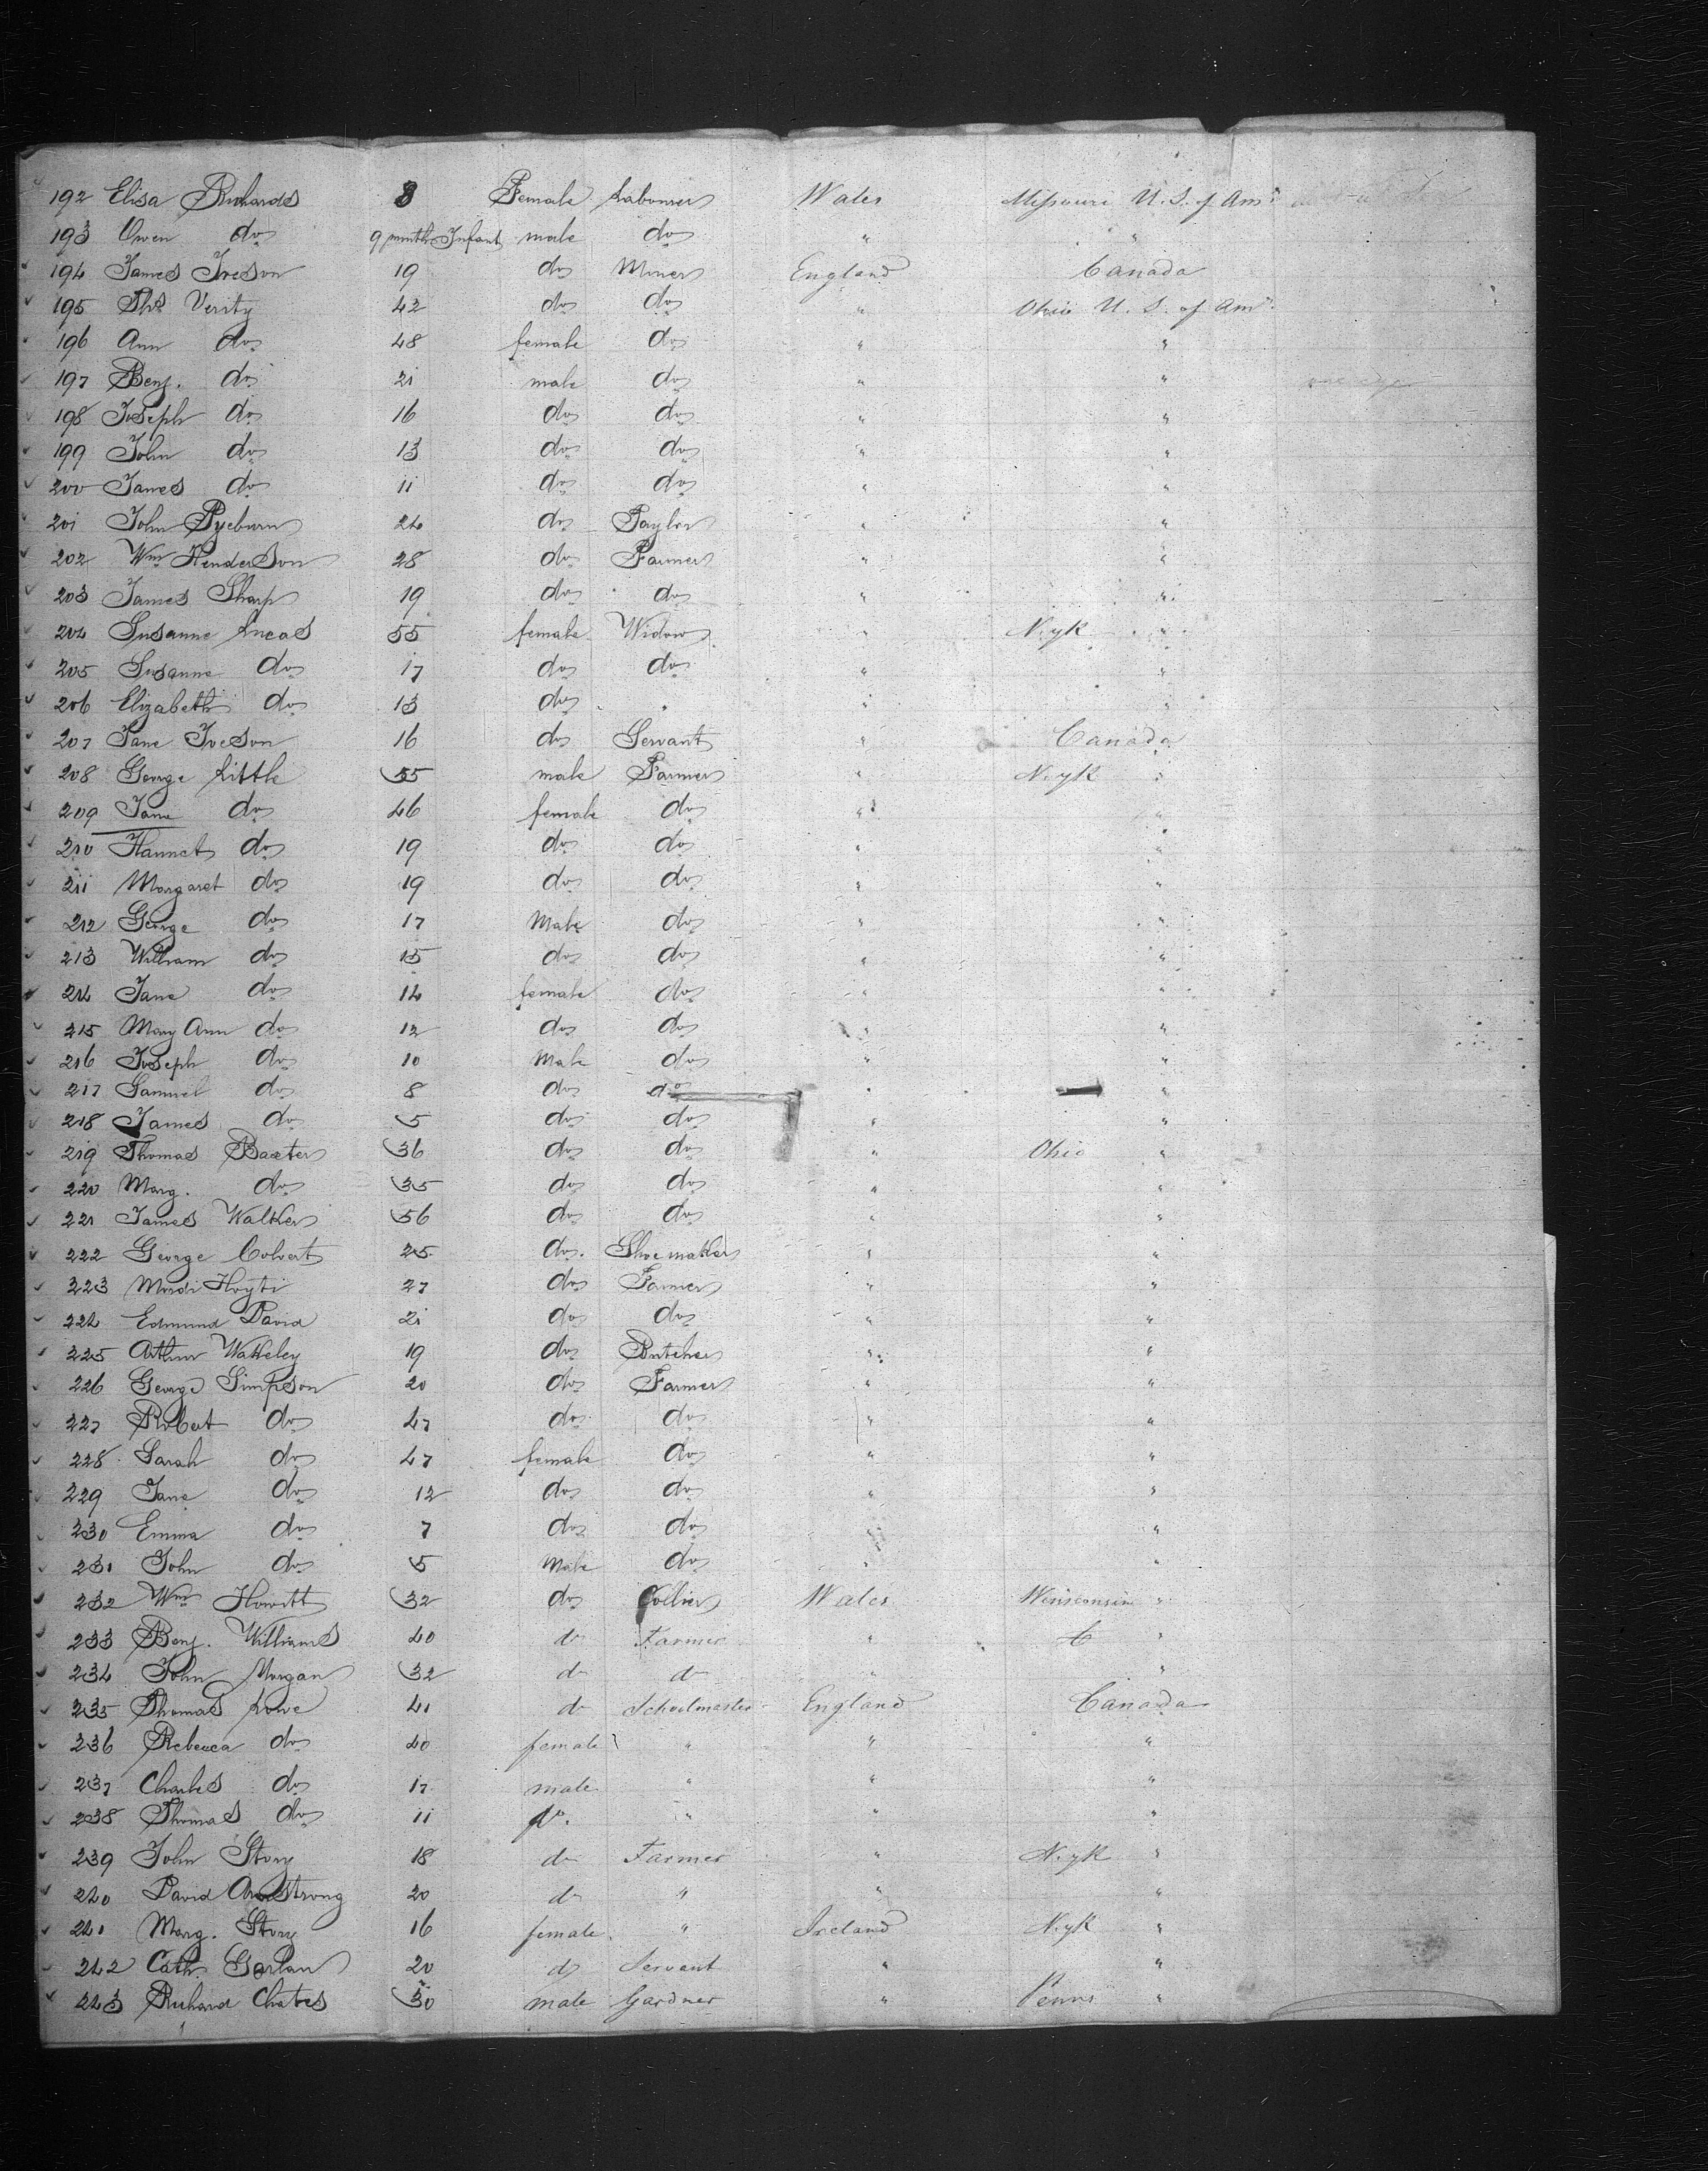 192 Elisa Richards 8 Female Labourer Wales Missouri U. S. of Am.
193 Owen do 9 month Infant male do " "
194 James Ireson 19 do Miner England Canada
195 Ths Verity 42 do do " Ohio U. S. of Am.
196 Ann do 48 female do " "
197 Benj. do 21 male do " "
198 Joseph do 16 do do " "
199 John do 13 do do " "
200 James do 11 do do " "
201 John Pyeburn 24 do Taylor " "
202 Wm Henderson 28 do Farmer " "
203 James Sharp 19 do do " "
204 Susanne Lucas 55 female Widow " N.yk "
205 Susanne do 17 do do " "
206 Elizabeth do 13 do " " "
207 Jane Iveson 16 do Servant " Canada
208 George Little 55 male Farmer " N.yk "
209 Jane do 46 female do " "
210 Hannet do 19 do do " "
211 Margaret do 19 do do " "
212 George do 17 Male do " "
213 William do 15 do do " "
214 Jane do 14 female do " "
215 Mary Ann do 12 do do " "
216 Joseph do 10 Male do " "
217 Samuel do 8 do do " "
218 James do 5 do do " "
219 Thomas Baxter 36 do do " Ohio "
220 Marg. do 35 do do " "
221 James Walker 56 do do " "
222 George Colvert 25 do. Shoemaker " "
223 27 do Farmer " "
224 Edmund David 21 do do " "
225 Arthur Wakeley 19 do Butcher " "
226 George Simpson 20 do Farmer " "
227 Robert do 47 do do " "
228 Sarah do 47 female do " "
229 Jane do 12 do do " "
230 Emma do 7 do do " "
231 John do 5 Male do " "
232 Wm Howitt 32 do Collier Wales Winsconsin "
233 Benj. Williams 40 do Farmer " "
234 John Morgan 32 do do " "
235 Thomas Lowe 41 do Schoolmaster England Canada
236 Rebecca do 40 female " " "
237 Charles do 17 male " " "
238 Thomas do 11 do. " " "
239 John Story 18 do Farmer " N.yk "
240 David Armstrong 20 do " " "
241 Marg. Story 16 female " Ireland N.yk "
242 Cath. Garlan 20 do Servant " "
243 Richard Chates 30 male Gardner " Penns "